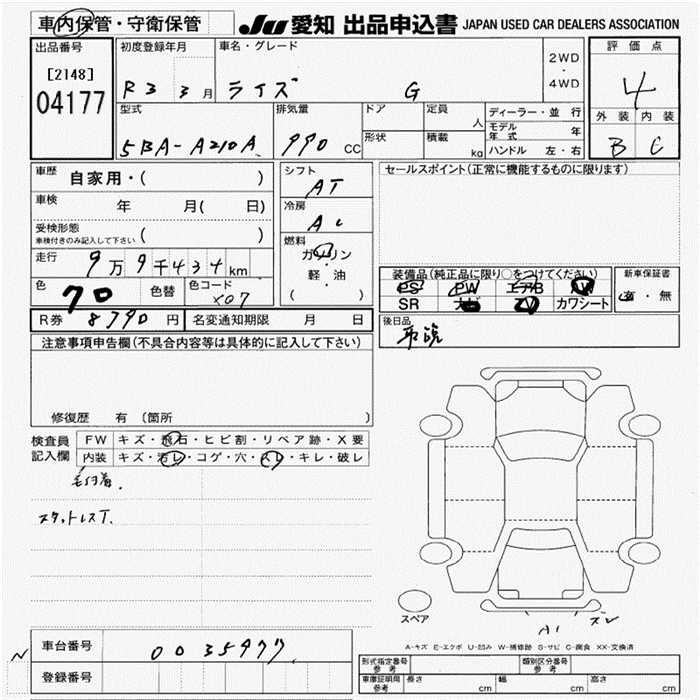 車内保管・守衛保管 JU 愛知 出品申込書 JAPAN USED CAR DEALERS ASSOCIATION
出品番号 初度登録年月 車名・グレード 2WD・4WD 評価点
[2148] R3 3月 ライズ G 4
04177
型式 排気量 ドア 定員 人 ディーラー・並行 外装 内装
5BA-A210A 990 CC 形状 積載 kg モデル年式 年 B C
ハンドル 左・右
車歴 自家用・( ) シフト AT セールスポイント(正常に機能するものに限ります)
車検 年 月( 日) 冷房 AC
受検形態 車検付きのみ記入して下さい ( ) 燃料 ガソリン・軽・油 ( )
走行 9万9千434km
装備品(純正品に限り○をつけてください) 新車保証書
色 クロ 色替 色コード X07 PS PW エアB AW 有・無
SR ナビ TV カワシート
R券 8790円 名変通知期限 月 日 後日品
取説
注意事項申告欄(不具合内容等は具体的に記入して下さい)
修復歴 有 〔箇所
検査員記入欄 FW キズ・飛石・ヒビ割・リペア跡・X要
内装 キズ・汚レ・コゲ・穴・スレ・キレ・破レ
毛付着.
スタットレスT.
スペア
A1 ズレ
A-キズ E-エクボ U-凹み W-補修跡 S-サビ C-腐食 XX-交換済
車台番号 0035977
N
登録番号
形式指定番号 参考 類別区分番号 参考
車庫証明用 参考 長さ cm 幅 cm 高さ cm